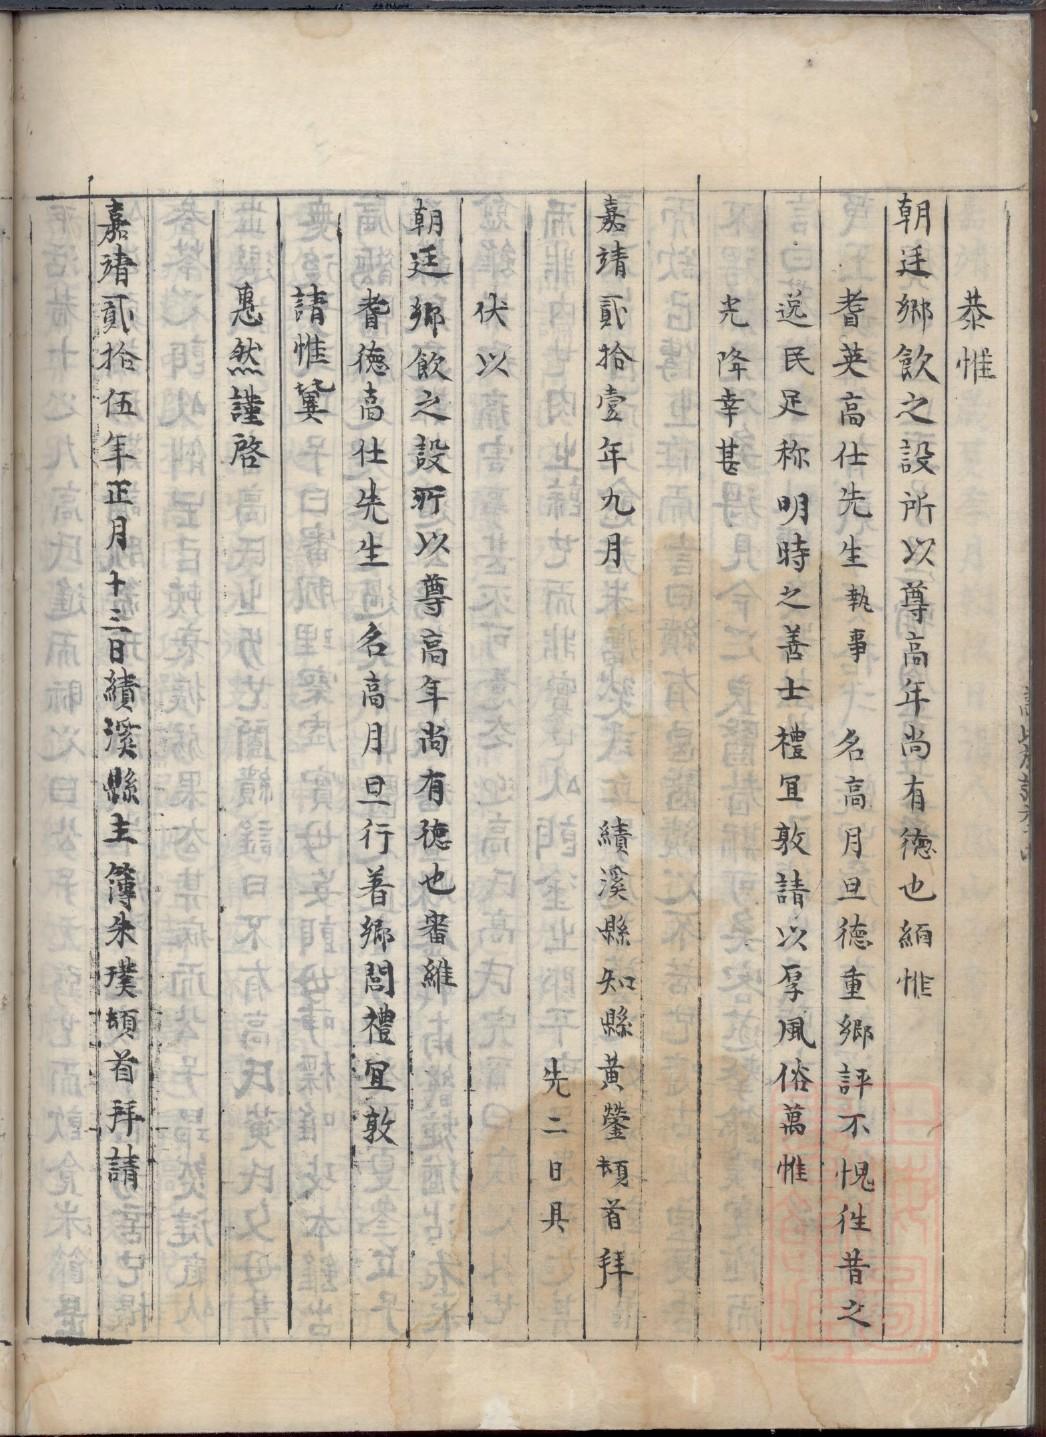 恭惟
朝廷鄉飲之設所以尊高年尚有德也緬惟
耆英高仕先生執事　名高月旦德重鄉評不愧徃昔之
逸民足称明時之善士禮宜敦請以厚風俗萬惟
光降幸甚
嘉靖貳拾壹年九月　績溪縣知縣黃鎣頓首拜
先二日具
伏以
朝廷鄉飲之設所以尊高年尚有德也畨維
耆德高仕先生　名高月旦行著鄉閭禮宜敦
請惟冀
惠然謹啓
嘉靖貳拾伍年正月十三日績溪縣主簿朱璞頓首拜請